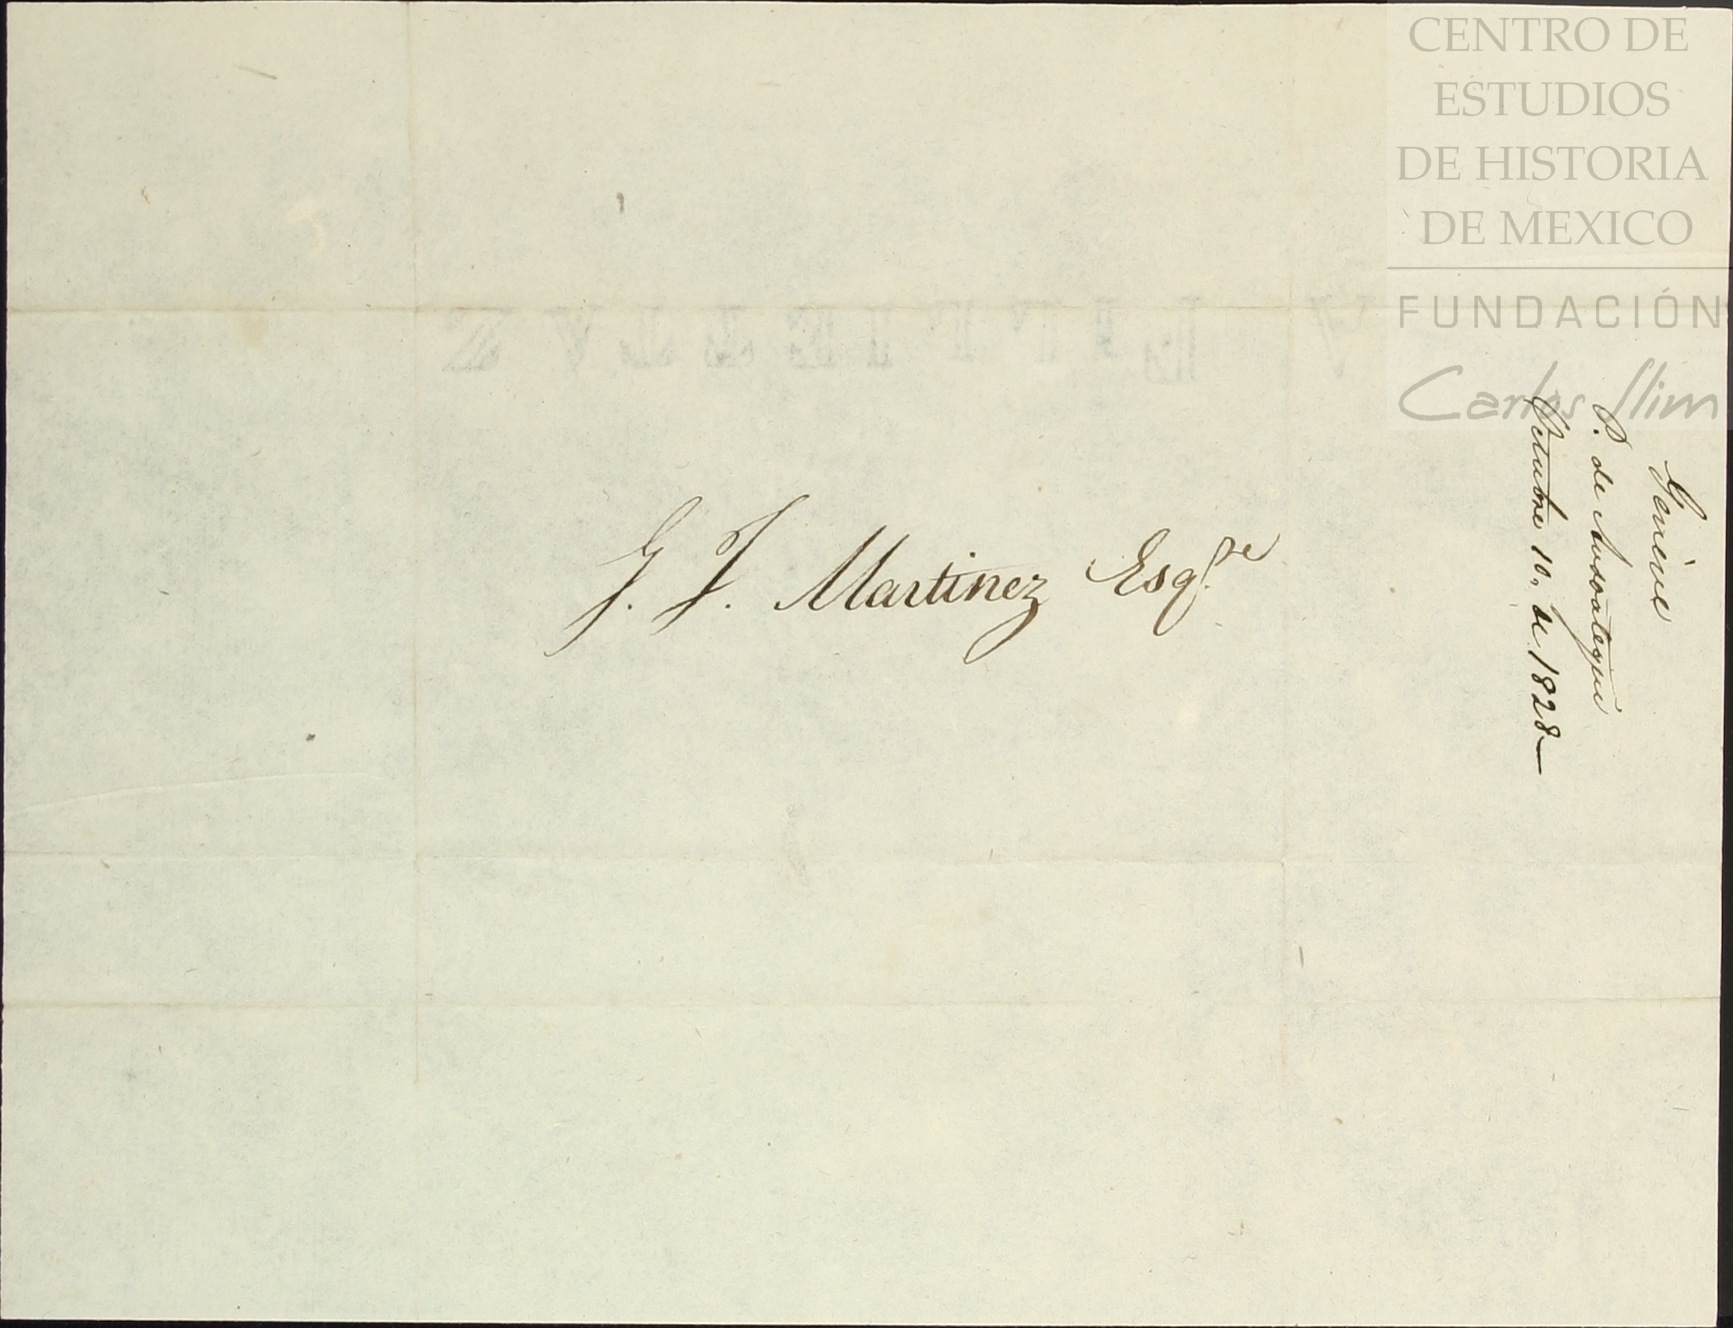 CENTRO DE
ESTUDIOS
DE HISTORIA
DE MEXICO
FUNDACIÓN
Carlos Slim
J. J. Martinez Esqre
Genève
P. de Ansoategui
Octubre 10, de 1828